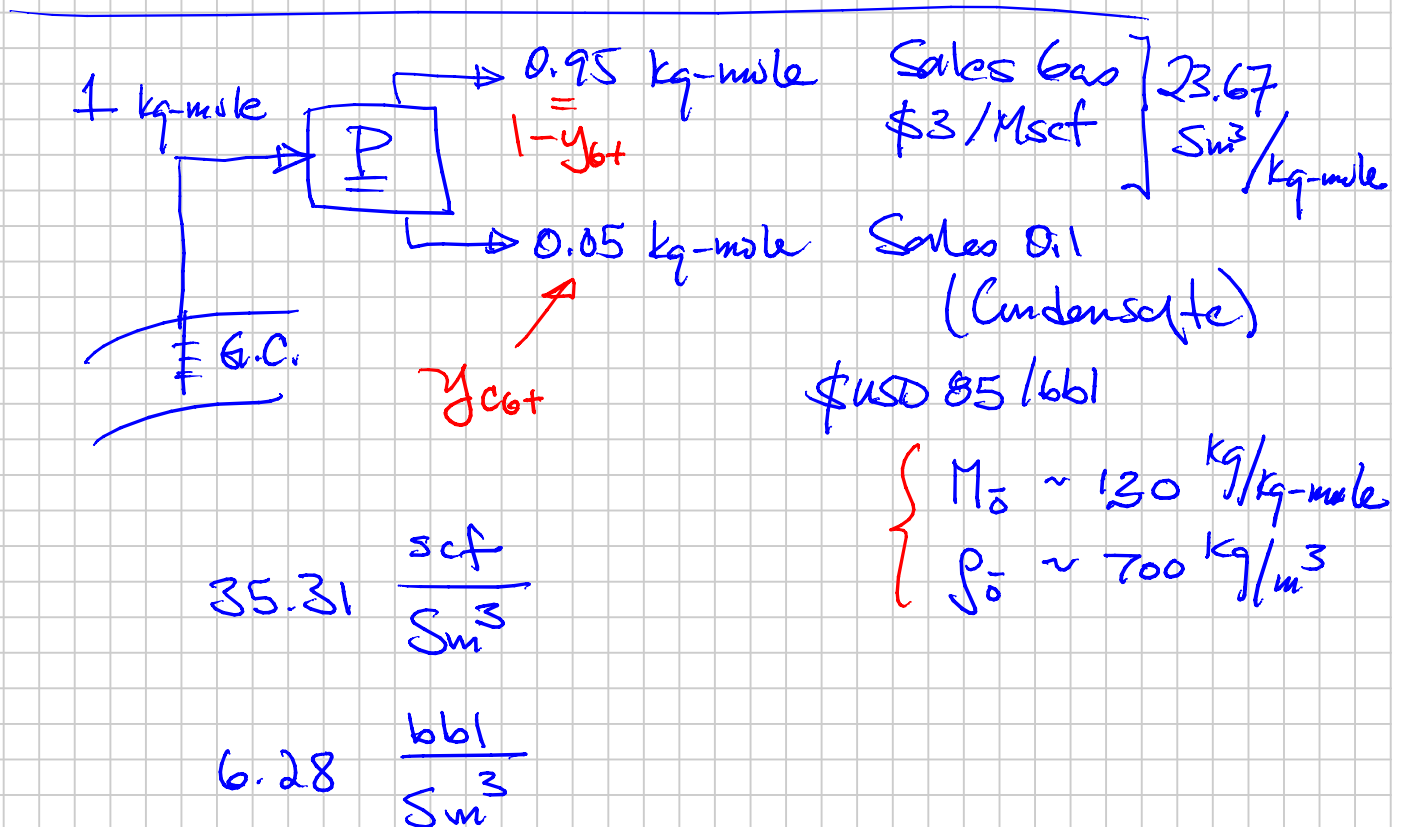 1 kg-mole
P
0.95 kg-mole
1-y6+
Sales Gas
$3/Mscf
23.67
Sm³/kg-mole
0.05 kg-mole
Sales Oil
(Condensate)
yC6+
G.C.
$USD 85/bbl
Mō ~ 130 kg/kg-mole
ρō ~ 700 kg/m³
35.31 scf/Sm³
6.28 bbl/Sm³